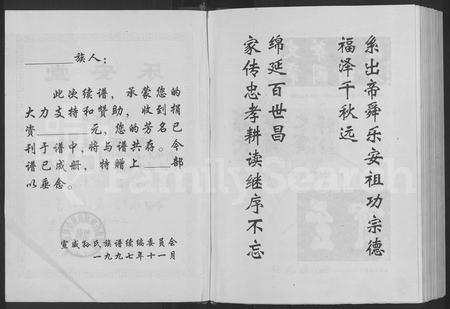 ________族人：
此次续谱，承蒙您的
大力支持和赞助，收到捐
资________元，您的芳名已
刊于谱中，将与谱共存。今
谱已成册，特赠上____部
以垂念。
宣威孙氏族谱续编委员会
一九九七年十一月
系出帝舜乐安祖功宗德
福泽千秋远
绵延百世昌
家传忠孝耕读继序不忘
FamilySearch